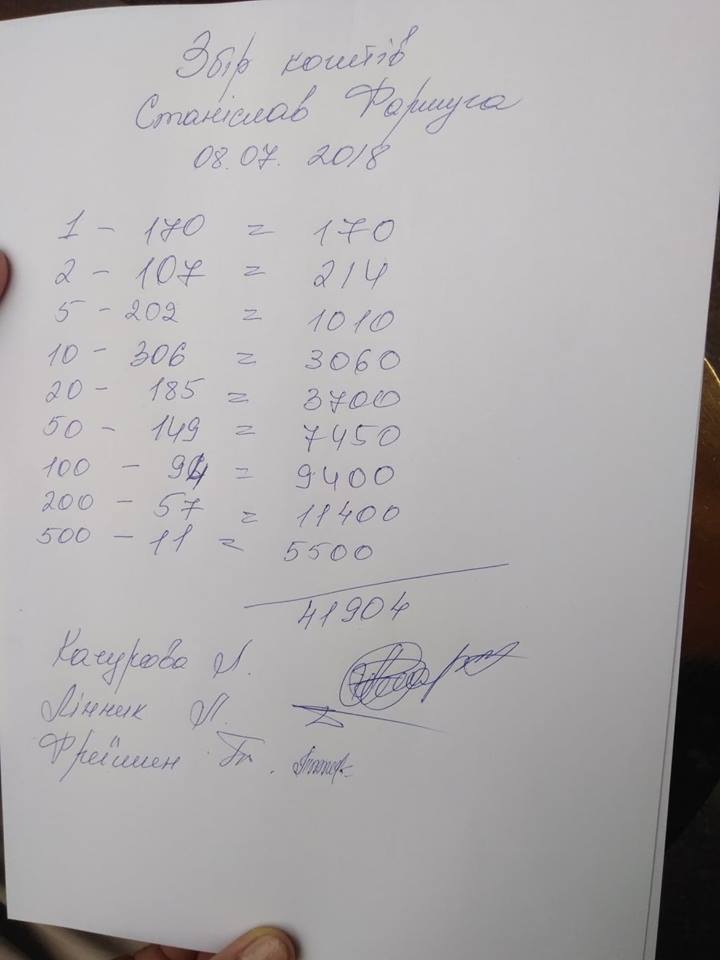 Збір коштів
Станіслав Формуга
08.07. 2018
1 - 170 = 170
2 - 107 = 214
5 - 202 = 1010
10 - 306 = 3060
20 - 185 = 3700
50 - 149 = 7450
100 - 94 = 9400
200 - 57 = 11400
500 - 11 = 5500
41904
Качурова Л.
Лінник Л.